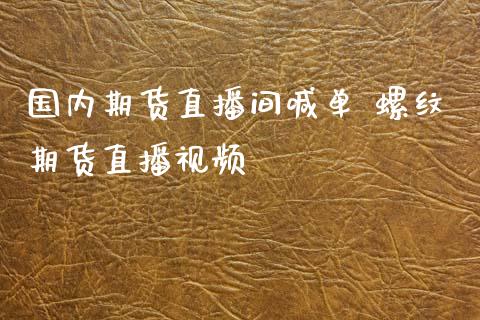 国内期货直播间喊单 螺纹
期货直播视频